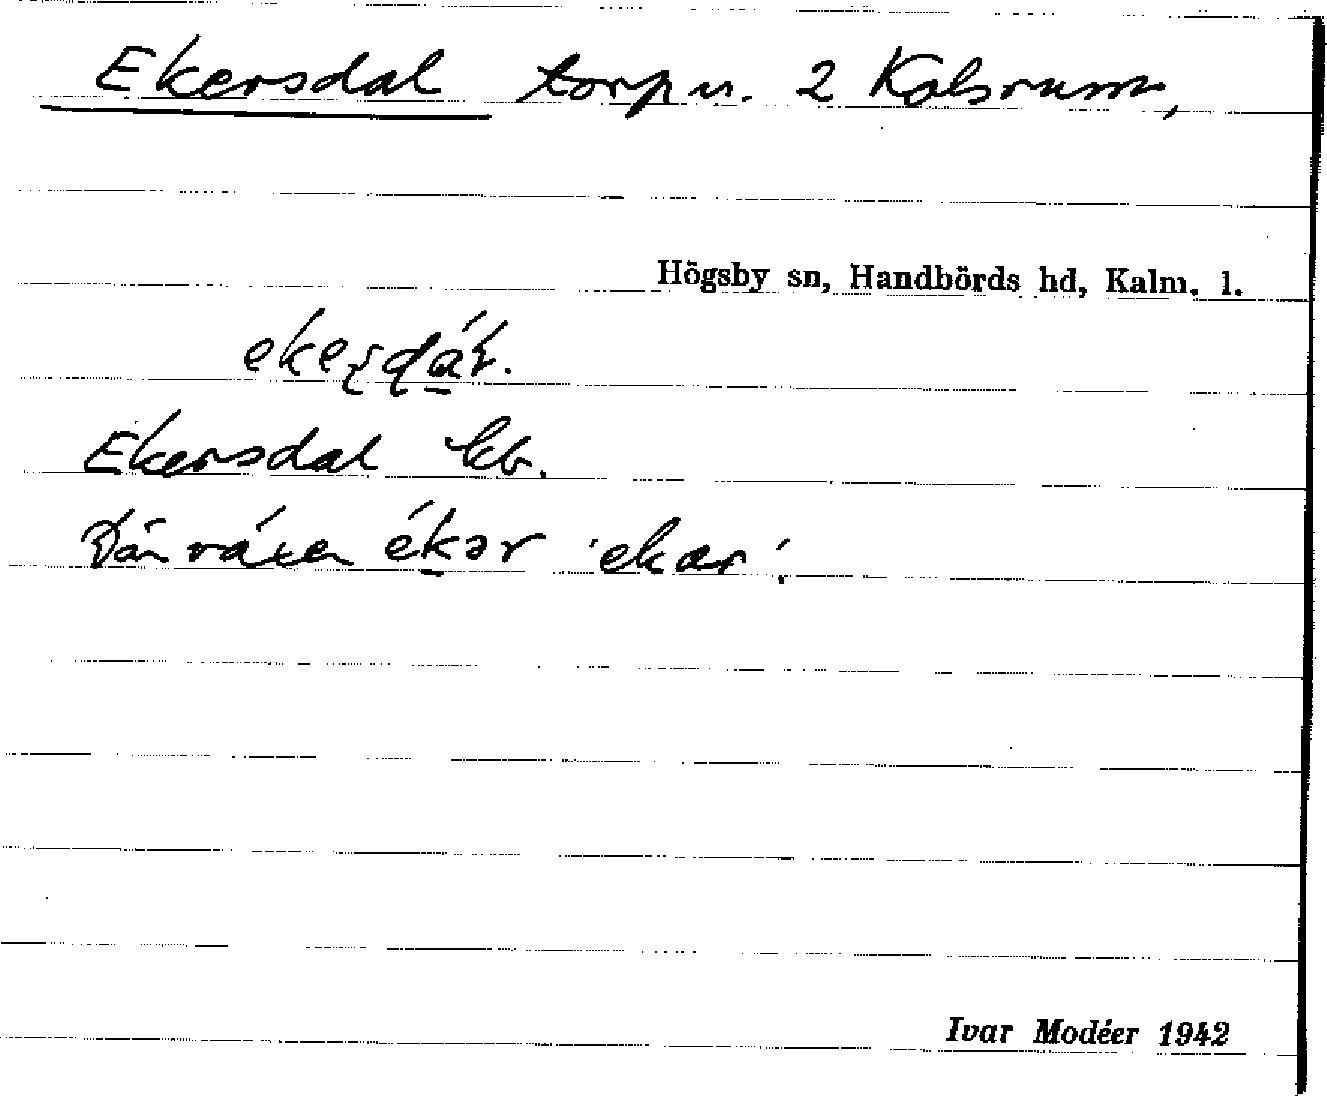 Ekersdal torp u. 2 Kalsrum,
Högsby sn, Handbörds hd, Kalm. l.
Ekersdal kb.
Där växer ékər 'ekar'.
Ivar Modéer 1942